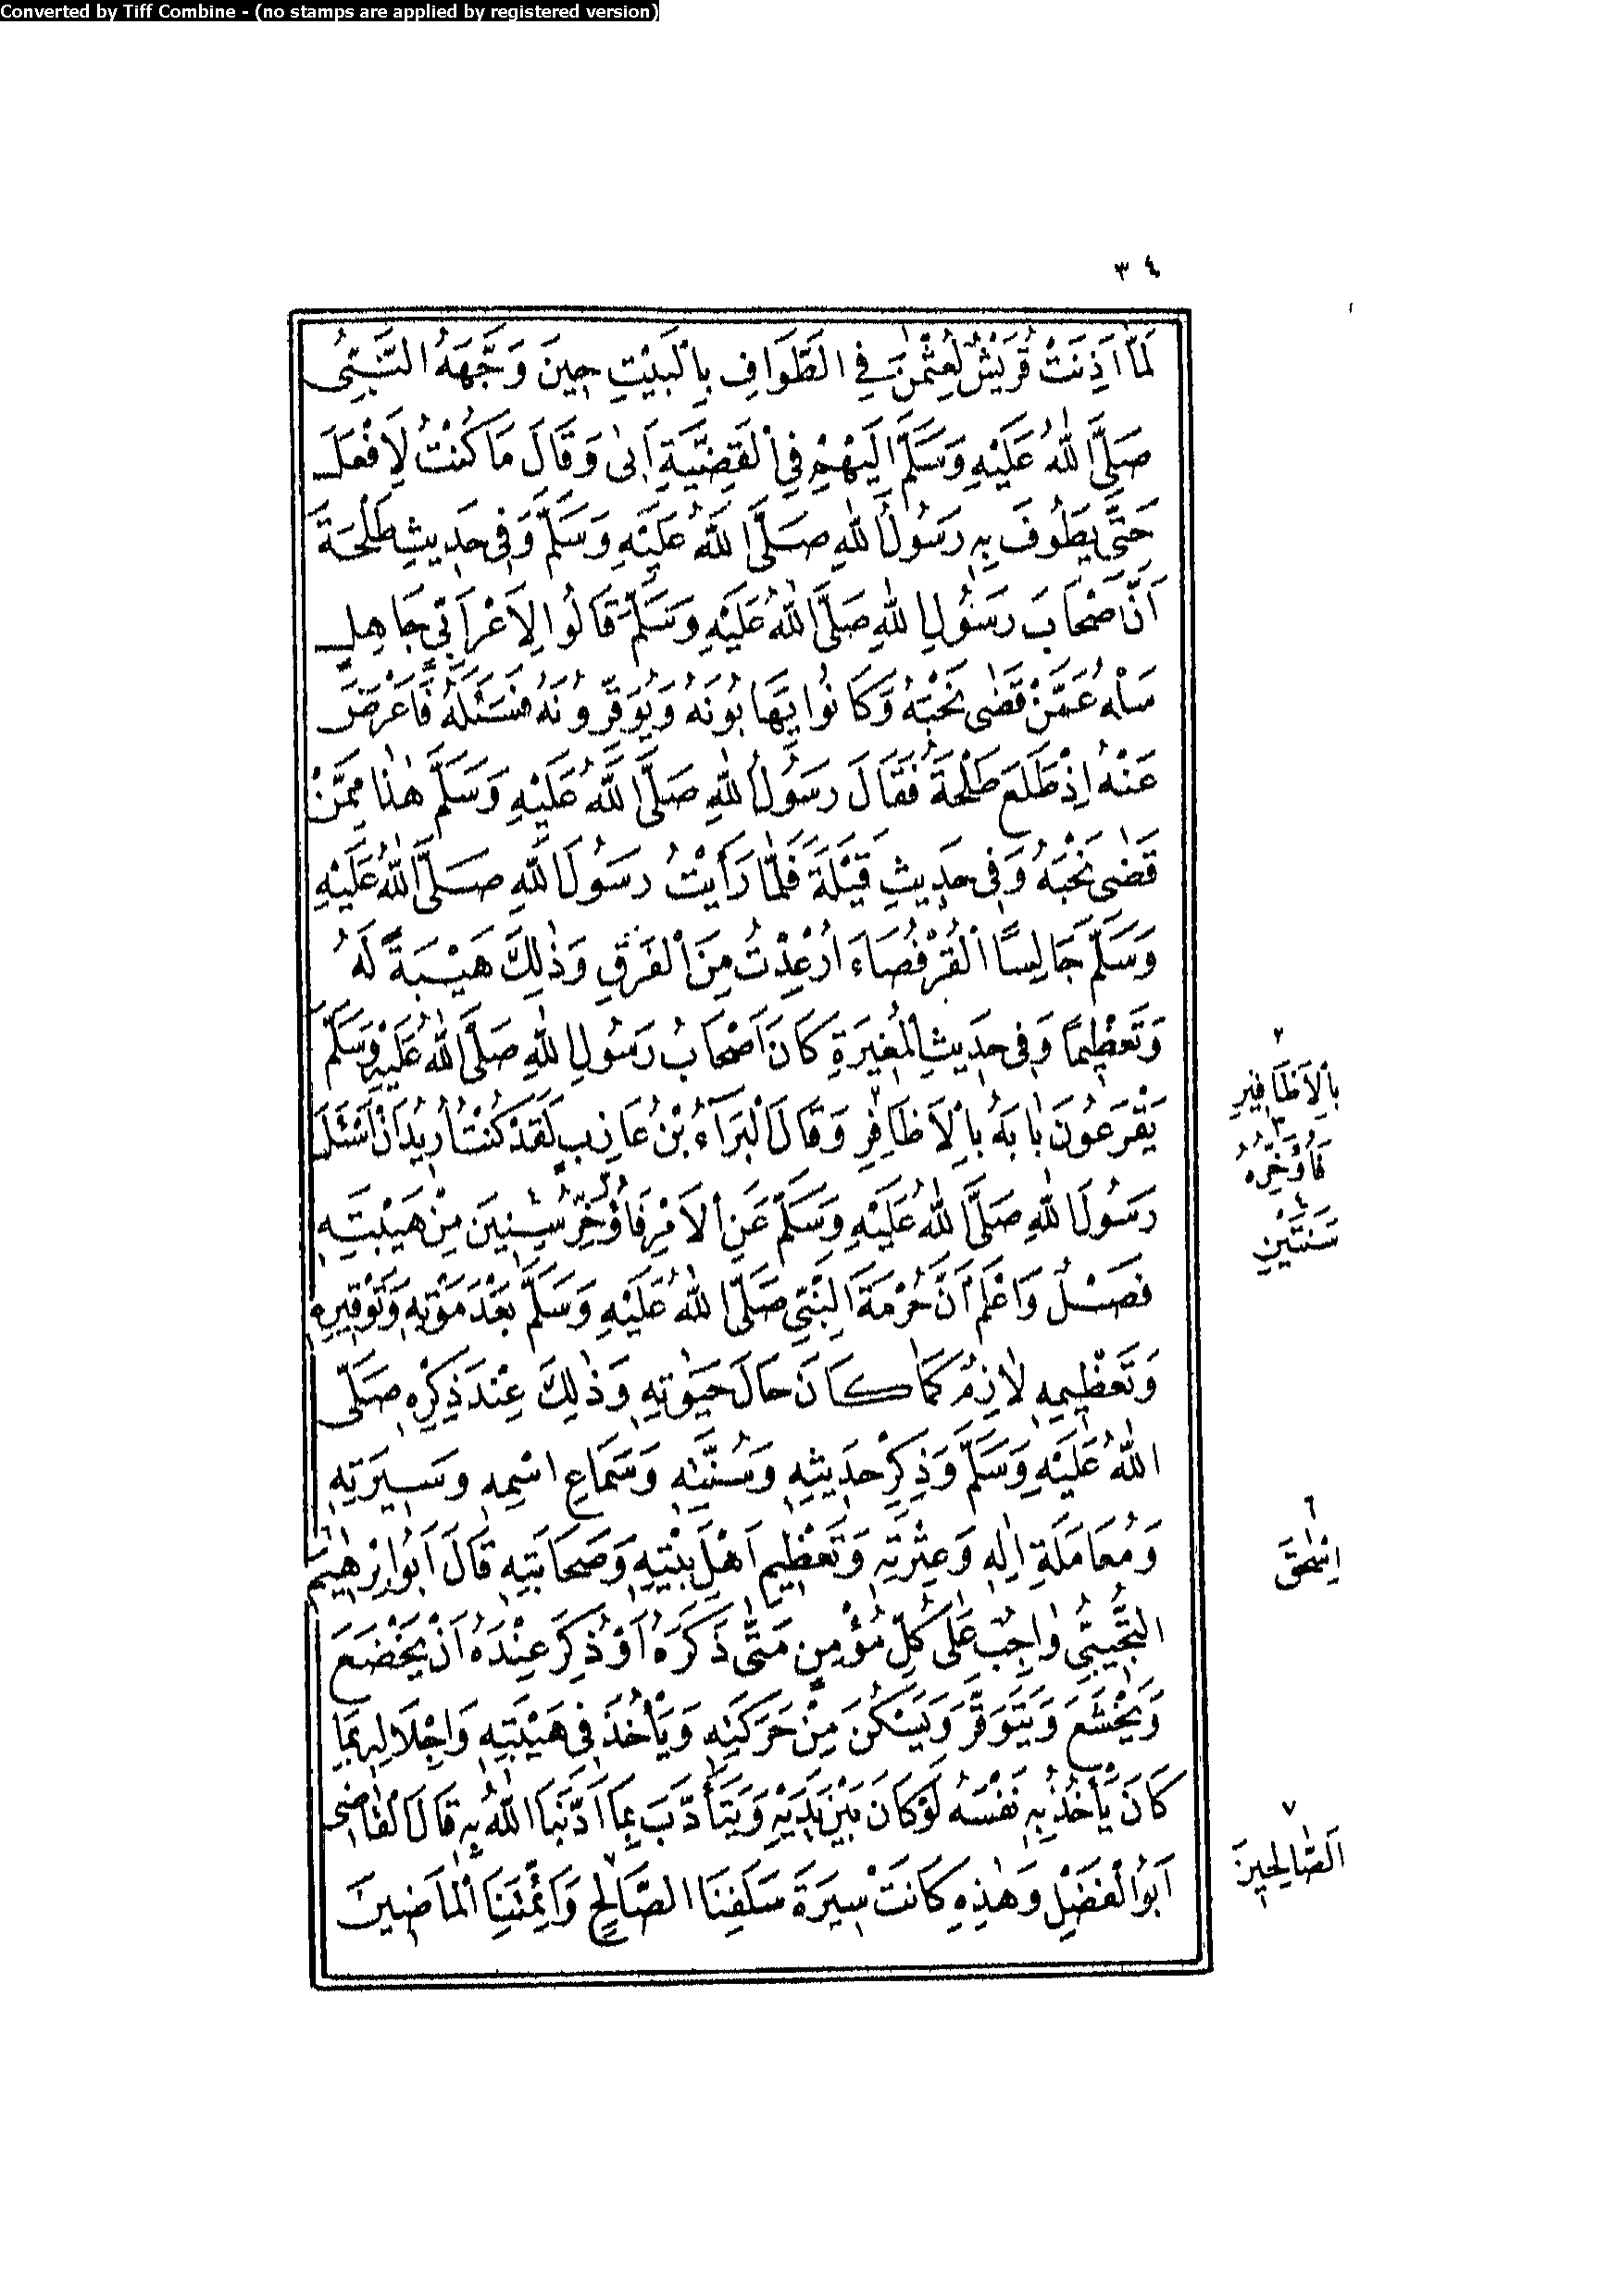 Converted by Tiff Combine - (no stamps are applied by registered version)
٣٤
لَمَّا اَذِنَتْ قُرَيْشٌ لِعُثْمٰنَ فِي الطَّوَافِ بِالْبَيْتِ حِينَ وَجَّهَهُ النَّبِيُّ
صَلَّى اللهُ عَلَيْهِ وَسَلَّمَ اِلَيْهِمْ فِي الْقَضِيَّةِ اَبٰى وَقَالَ مَا كُنْتُ لِاَفْعَلَ
حَتَّى يَطُوفَ بِهِ رَسُولُ اللهِ صَلَّى اللهُ عَلَيْهِ وَسَلَّمَ وَفِي حَدِيثِ طَلْحَةَ
اَنَّ اَصْحَابَ رَسُولِ اللهِ صَلَّى اللهُ عَلَيْهِ وَسَلَّمَ قَالُوا لِاَعْرَابِيٍّ جَاهِلٍ
سَلْهُ عَمَّنْ قَضٰى نَحْبَهُ وَكَانُوا يَهَابُونَهُ وَيُوَقِّرُونَهُ فَسَئَلَهُ فَاَعْرَضَ
عَنْهُ اِذْ طَلَعَ طَلْحَةُ فَقَالَ رَسُولُ اللهِ صَلَّى اللهُ عَلَيْهِ وَسَلَّمَ هٰذَا مِمَّنْ
قَضٰى نَحْبَهُ وَفِي حَدِيثِ قَيْلَةَ فَلَمَّا رَاَيْتُ رَسُولَ اللهِ صَلَّى اللهُ عَلَيْهِ
وَسَلَّمَ جَالِسًا الْقُرْفُصَاءَ اُرْعِدْتُ مِنَ الْفَرَقِ وَذٰلِكَ هَيْبَةً لَهُ
وَتَعْظِيمًا وَفِي حَدِيثِ الْمُغِيرَةِ كَانَ اَصْحَابُ رَسُولِ اللهِ صَلَّى اللهُ عَلَيْهِ وَسَلَّمَ
يَقْرَعُونَ بَابَهُ بِالْاَظَافِرِ وَقَالَ الْبَرَاءُ بْنُ عَازِبٍ لَقَدْ كُنْتُ اُرِيدُ اَنْ اَسْئَلَ
رَسُولَ اللهِ صَلَّى اللهُ عَلَيْهِ وَسَلَّمَ عَنِ الْاَمْرِ فَاُؤَخِّرُ سِنِينَ مِنْ هَيْبَتِهِ
فَصْلٌ وَاعْلَمْ اَنَّ حُرْمَةَ النَّبِيِّ صَلَّى اللهُ عَلَيْهِ وَسَلَّمَ بَعْدَ مَوْتِهِ وَتَوْقِيرِهِ
وَتَعْظِيمِهِ لَازِمٌ كَمَا كَانَ حَالَ حَيٰوتِهِ وَذٰلِكَ عِنْدَ ذِكْرِهِ صَلَّى
اللهُ عَلَيْهِ وَسَلَّمَ وَذِكْرِ حَدِيثِهِ وَسُنَّتِهِ وَسَمَاعِ اسْمِهِ وَسِيرَتِهِ
وَمُعَامَلَةِ اٰلِهِ وَعِتْرَتِهِ وَتَعْظِيمِ اَهْلِ بَيْتِهِ وَصَحَابَتِهِ قَالَ اَبُو اِبْرٰهِيمَ
التُّجِيبِيُّ وَاجِبٌ عَلٰى كُلِّ مُؤْمِنٍ مَتٰى ذَكَرَهُ اَوْ ذُكِرَ عِنْدَهُ اَنْ يَخْضَعَ
وَيَخْشَعَ وَيَتَوَقَّرَ وَيَسْكُنَ مِنْ حَرَكَتِهِ وَيَأْخُذَ فِي هَيْبَتِهِ وَاِجْلَالِهِ بِمَا
كَانَ يَأْخُذُ بِهِ نَفْسَهُ لَوْ كَانَ بَيْنَ يَدَيْهِ وَيَتَأَدَّبَ بِمَا اَدَّبَنَا اللهُ بِهِ قَالَ الْقَاضِي
اَبُو الْفَضْلِ وَهٰذِهِ كَانَتْ سِيرَةَ سَلَفِنَا الصَّالِحِ وَاَئِمَّتِنَا الْمَاضِينَ
٢
بِالْاَظَافِيرِ
٣
فَاُؤَخِّرُهُ
٤
سَنَتَيْنِ
٦
اِسْحٰقَ
٧
الصَّالِحِينَ